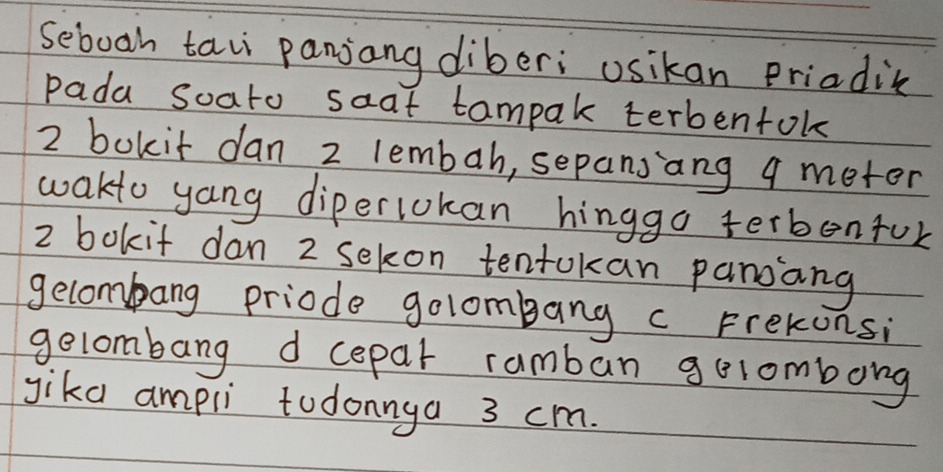 Sebuah tali panjang diberi usikan Priadik
Pada Suatu saat tampak terbentuk
2 bukit dan 2 lembah, sepanjang 4 meter
waktu yang diperlukan hingga terbentuk
2 bukit dan 2 sekon tentukan panjang
gelombang priode gelombang c Frekunsi
gelombang d cepat ramban gelombang
jika ampli tudonnya 3 cm.